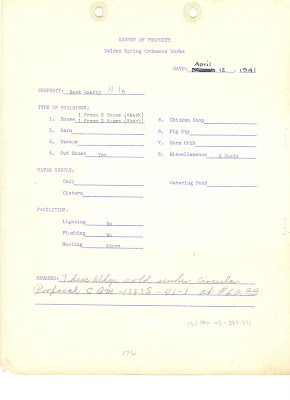 SURVEY OF PROPERTY
Golden Spring Ordnance Works
DATE: April 12, 1941
PROPERTY: Bark Quarry H-1a
TYPE OF BUILDINGS:
1 Frame 3 Rooms (Shack)
1. House 1 Frame 2 Rooms (Shack)
2. Barn
3. Garage
4. Out House Yes
5. Chicken Coop
6. Pig Sty
7. Corn Crib
8. Miscellaneous 2 Sheds
WATER SUPPLY:
Well
Cistern
Watering Pond
FACILITIES:
Lighting No
Plumbing No
Heating Stove
REMARKS: These Bldgs sold under Circular
Proposal at $60.00
176